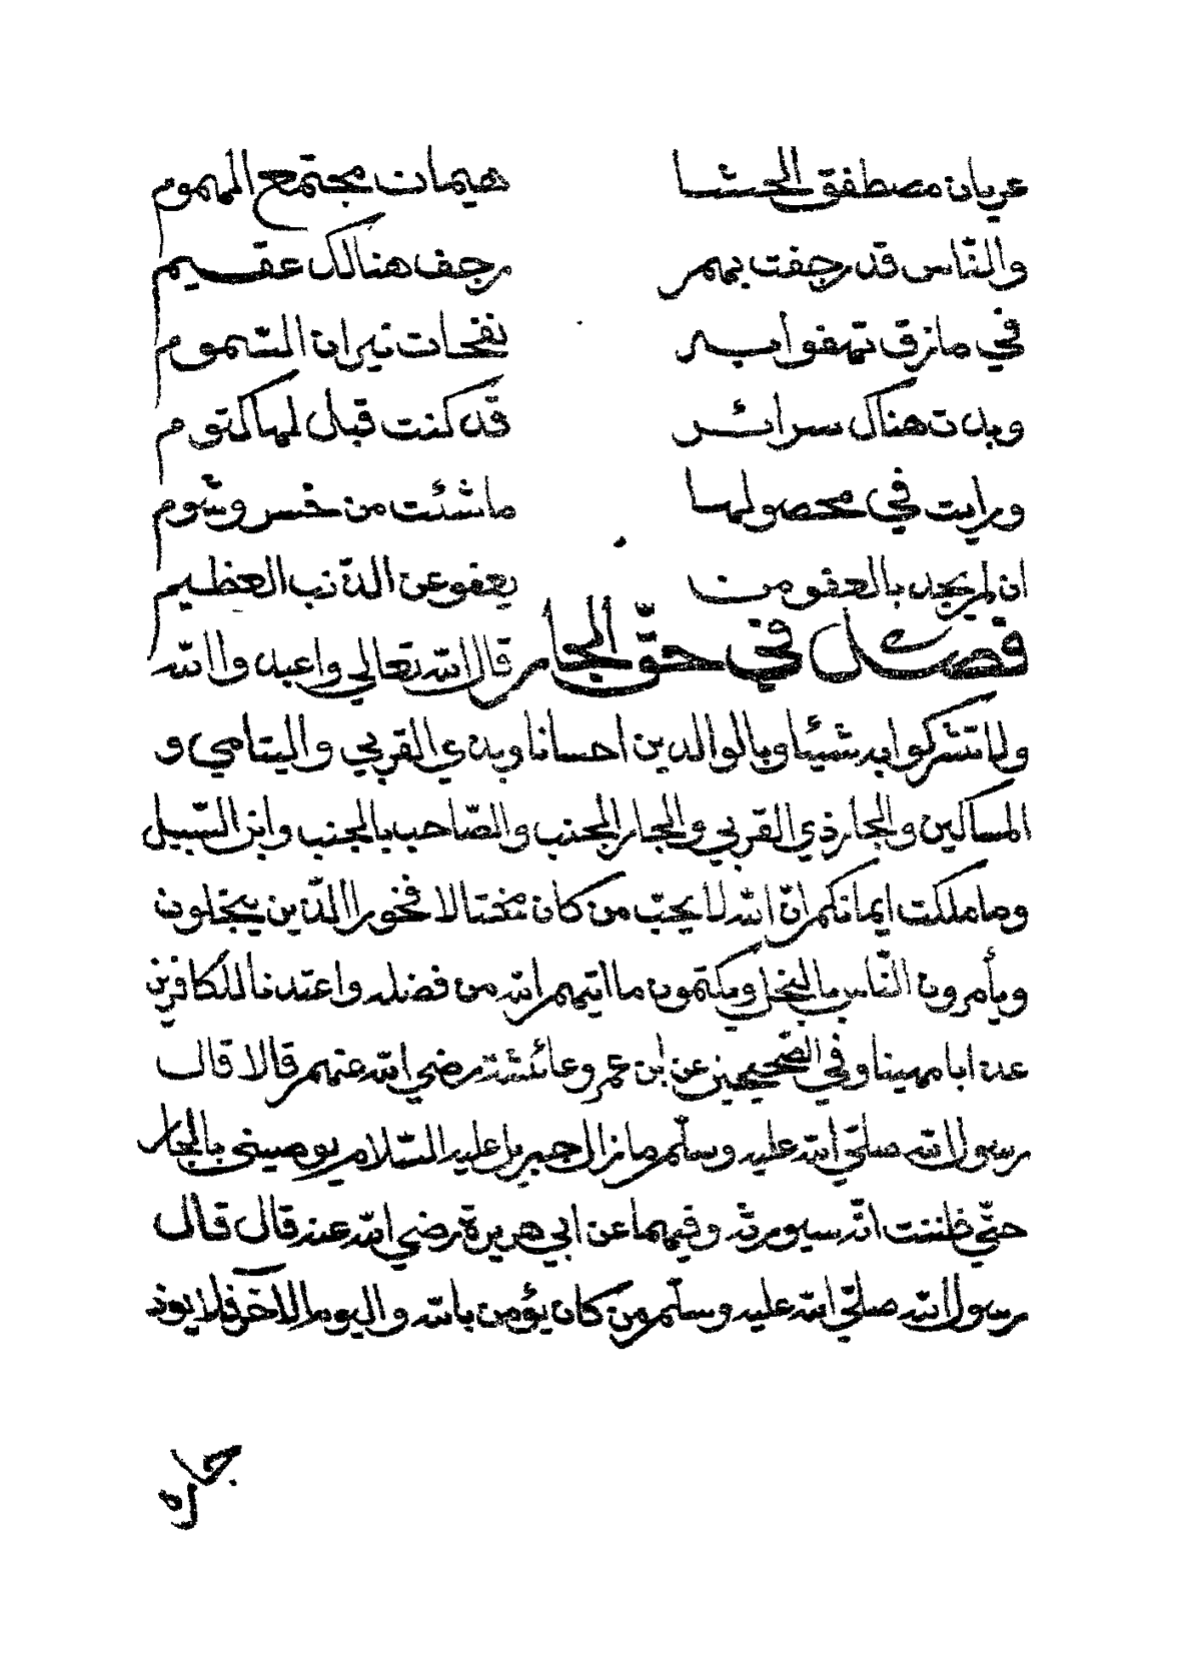 عريان مصطفق الحشا هيمان مجتمع الهموم
والنّاس قد رجفت بهم رجف هنالك عقيم
في مازق تهفوا به نفحات نيران السّموم
وبدت هناك سرائر قد كنت قبل لها كتوم
ورايت في محصولها ماشئت من خسر وشوم
ان لم يجد بالعفو من يعفو عن الذّنب العظيم
فصل في حقّ الجار قال الله تعالى واعبدوا الله
ولا تشركوا به شيئا وبالوالدين احسانا وبذي القربي واليتامي و
المساكين والجار ذي القربي والجار الجنب والصّاحب بالجنب وابن السّبيل
وما ملكت ايمانكم انّ الله لا يحبّ من كان مختالا فخورا الّذين يبخلون
ويأمرون النّاس بالبخل ويكتمون ما اتيهم الله من فضله واعتدنا للكافرين
عذابا مهينا وفي الصّحيحين عن ابن عمر وعائشة رضي الله عنهم قالا قال
رسول الله صلّي الله عليه وسلّم ما زال جبريل عليه السّلام يوصيني بالجار
حتّي ظننت انّه سيورثه وفيهما عن ابي هريرة رضي الله عنه قال قال
رسول الله صلّي الله عليه وسلّم من كان يؤمن بالله واليوم الآخر فلا يوذ
جاره